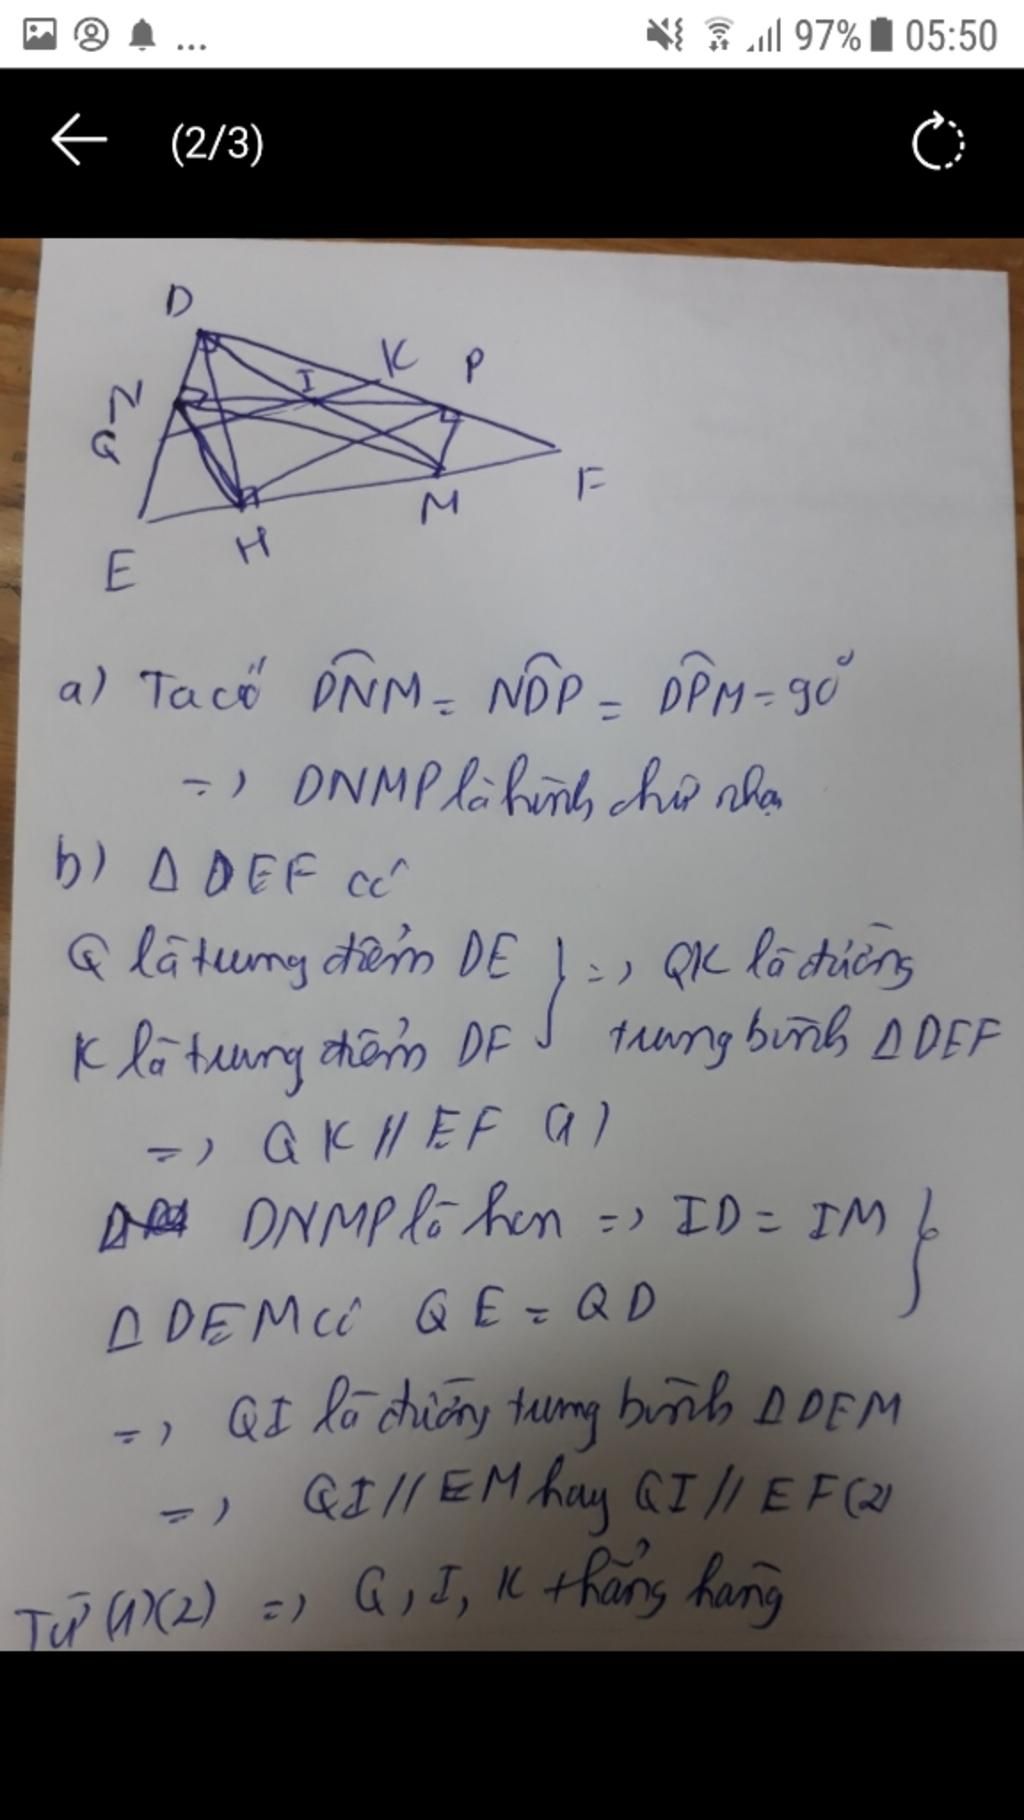 ... 97% 05:50
(2/3)
D
K
P
I
N
Q
F
M
H
E
a) Ta có DNM = NDP = DPM = 90°
=> DNMP là hình chữ nhậ
b) Δ DEF có
Q là trung điểm DE } => QK là đường
K là trung điểm DF trung bình Δ DEF
=> QK // EF (1)
DNMP là hcn => ID = IM }
Δ DEM có QE = QD
=> QI là đường trung bình Δ DEM
=> QI // EM hay QI // EF (2)
Từ (1)(2) => Q, I, K thẳng hàng